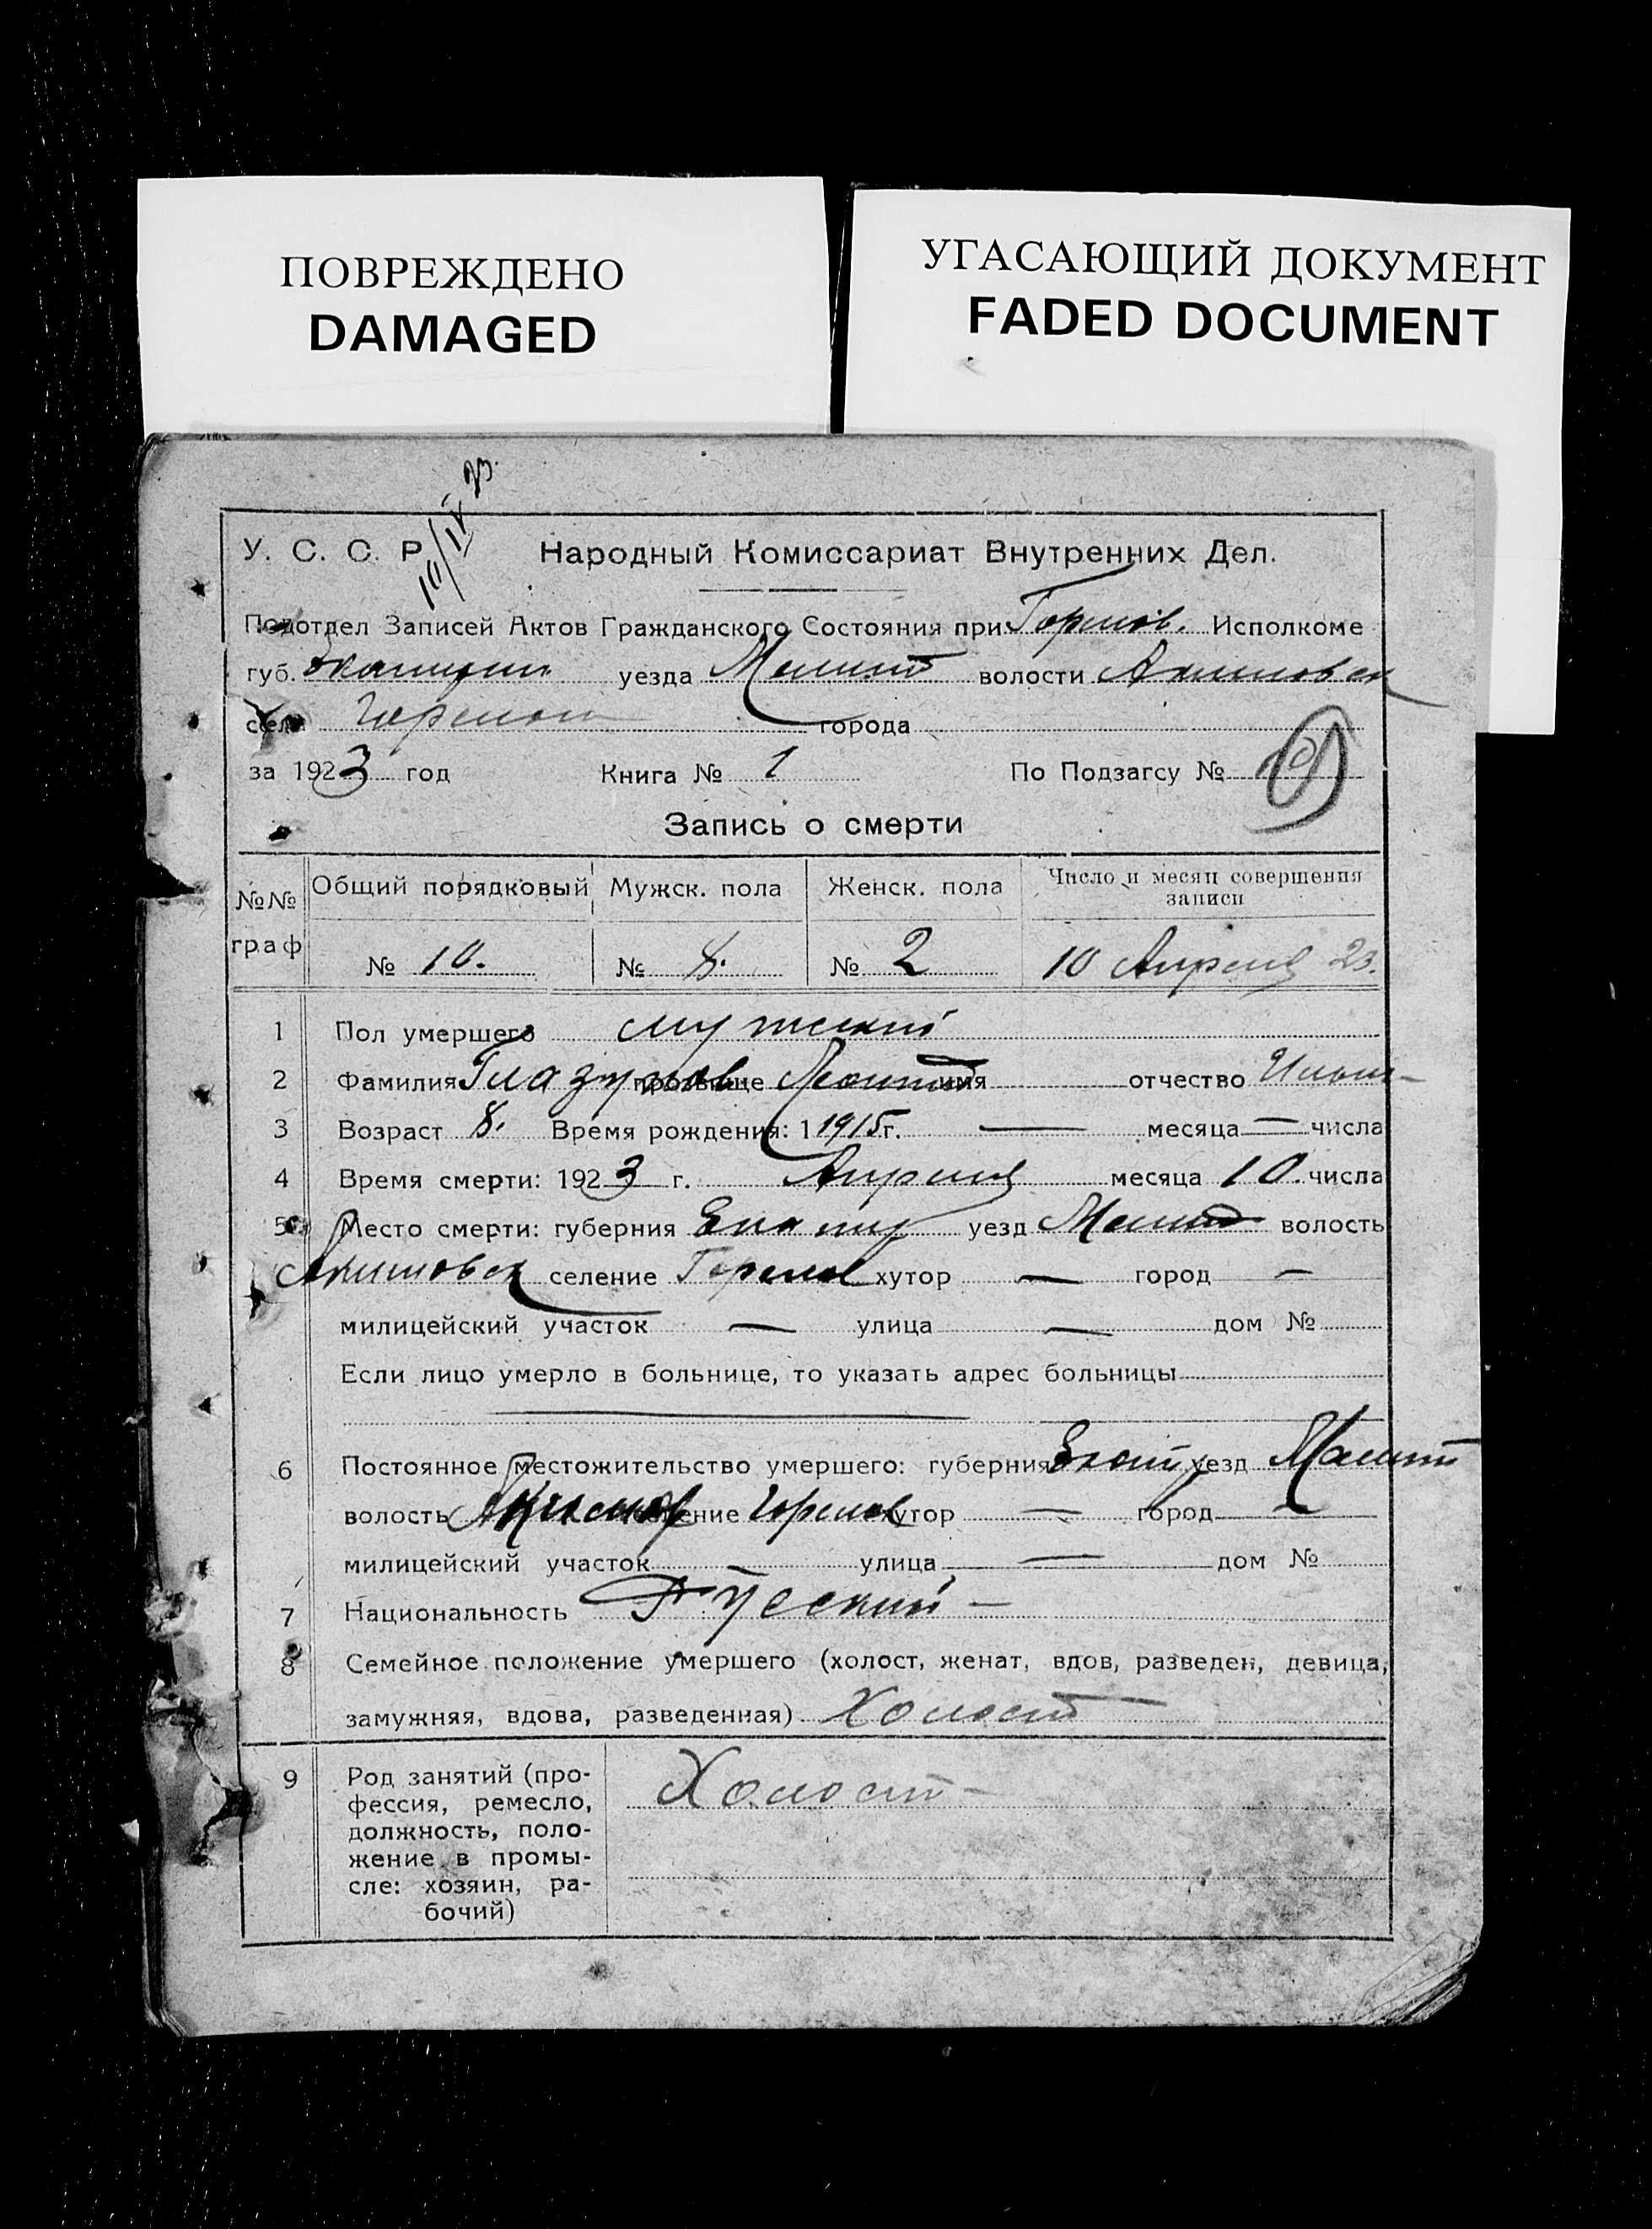 ПОВРЕЖДЕНО
DAMAGED
УГАСАЮЩИЙ ДОКУМЕНТ
FADED DOCUMENT
10/IV 23.
У. С. С. Р. Народный Комиссариат Внутренних Дел.
Подотдел Записей Актов Гражданского Состояния при Горелов. Исполкоме
губ. уезда Мелит волости Акимовск
села Горелом города
за 1923 год Книга № 1 По Подзагсу №
Запись о смерти
№№ граф Общий порядковый Мужск. пола Женск. пола Число и месяц совершения записи
№ 10. № 8. № 2 10 Апреля 23.
1 Пол умершего мужской
2 Фамилия Глазунов прозвище имя отчество
3 Возраст 8. Время рождения: 1 1915 г. — месяца — числа
4 Время смерти: 1923 г. Апреля месяца 10. числа
5 Место смерти: губерния Екатер уезд Мелит волость
Акимовск селение Горелов хутор — город —
милицейский участок — улица — дом №
Если лицо умерло в больнице, то указать адрес больницы
6 Постоянное местожительство умершего: губерния Екат уезд Мелит
волость Акимов селение Горелов хутор — город —
милицейский участок — улица — дом №
7 Национальность Русский —
8 Семейное положение умершего (холост, женат, вдов, разведен, девица,
замужняя, вдова, разведенная) Холост
9 Род занятий (про-
фессия, ремесло,
должность, поло-
жение в промы-
сле: хозяин, ра-
бочий)
Холост —